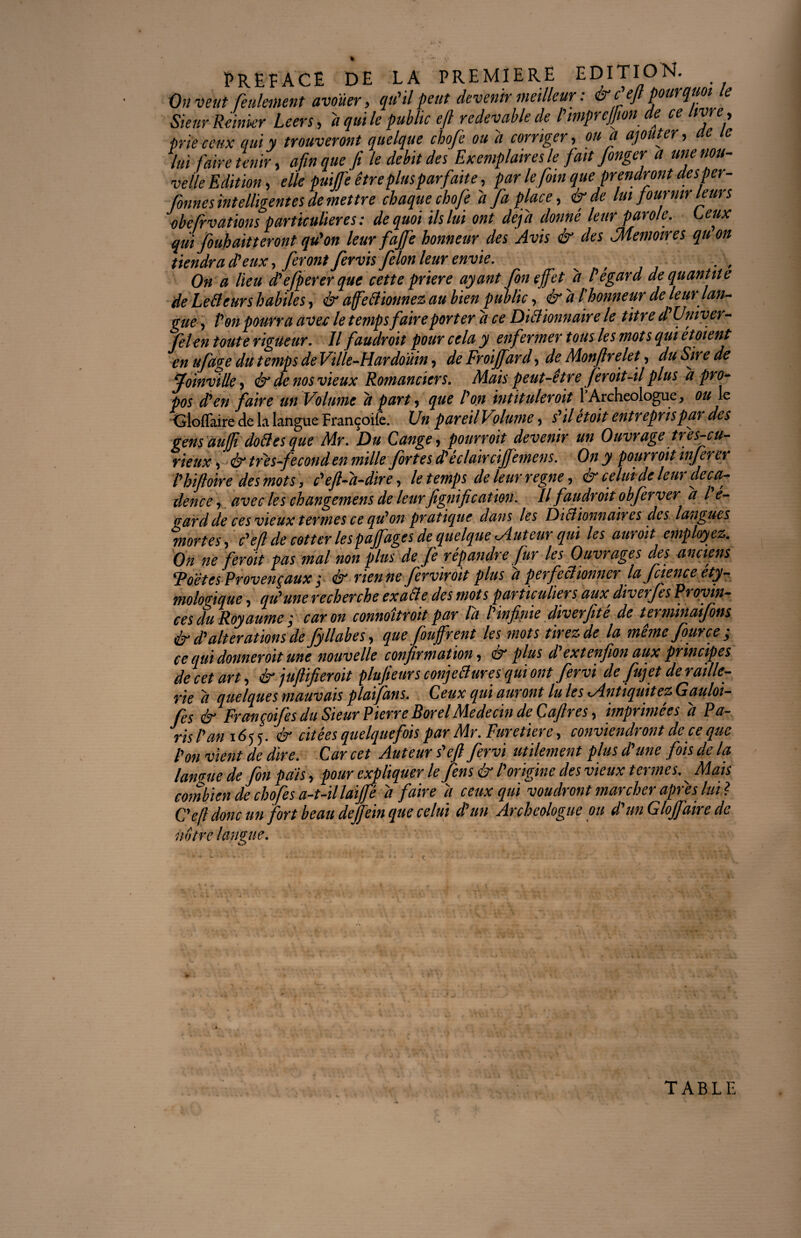 PREFACE DE LA PREMIERE EDITION.
On veut seulement avoüer, qu'il peut devenir meilleur: & c'est pourquoi le
Sieur Reinier Leers, à qui le public est redevable de l'impression de ce livre,
prie ceux qui y trouveront quelque chose ou à corriger, ou à ajoûter, de le
lui faire tenir, afin que si le debit des Exemplaires le fait songer à une nou-
velle Edition, elle puisse être plus parfaite, par le soin que prendront des per-
sonnes intelligentes de mettre chaque chose à sa place, & de lui fournir leurs
obesrvations particulieres: de quoi ils lui ont déja donné leur parole. Ceux
qui souhaitteront qu'on leur fasse honneur des Avis & des Memoires qu'on
tiendra d'eux, seront servis selon leur envie.
On a lieu d'esperer que cette priere ayant son effet à l'égard de quantité
de Lecteurs habiles, & affectionnez au bien public, & à l'honneur de leur lan-
gue, l'on pourra avec le temps faire porter à ce Dictionnaire le titre d'Univer-
sel en toute rigueur. Il faudroit pour cela y enfermer tous les mots qui étoient
en usage du temps de Ville-Hardoüin, de Froissard, de Monstrelet, du Sire de
Joinville, & de nos vieux Romanciers. Mais peut-être seroit-il plus à pro-
pos d'en faire un Volume à part, que l'on intituleroit l'Archeologue, ou le
Glossaire de la langue Françoise. Un pareil Volume, s'il étoit entrepris par des
gens aussi doctes que Mr. Du Cange, pourroit devenir un Ouvrage très-cu-
rieux, & très-fecond en mille sortes d'éclaircissemens. On y pourroit inserer
l'histoire des mots, c'est-à-dire, le temps de leur regne, & celui de leur deca-
dence, avec les changemens de leur signification. Il faudroit observer à l'é-
gard de ces vieux termes ce qu'on pratique dans les Dictionnaires des langues
mortes, c'est de cotter les passages de quelque Auteur qui les auroit employez.
On ne feroit pas mal non plus de se répandre sur les Ouvrages des anciens
Poëtes Provençaux; & rien ne serviroit plus à perfectionner la science éty-
mologique, qu'une recherche exacte des mots particuliers aux diverses Provin-
ces du Royaume; car on connoîtroit par là l'infinie diversité de terminaisons
& d'alterations de syllabes, que souffrent les mots tirez de la même source;
ce qui donneroit une nouvelle confirmation, & plus d'extension aux principes
de cet art, & justifieroit plusieurs conjectures qui ont servi de sujet de raille-
rie à quelques mauvais plaisans. Ceux qui auront lu les Antiquitez Gauloi-
ses & Françoises du Sieur Pierre Borel Medecin de Castres, imprimées à Pa-
ris l'an 1655. & citées quelquefois par Mr. Furetiere, conviendront de ce que
l'on vient de dire. Car cet Auteur s'est servi utilement plus d'une fois de la
langue de son païs, pour expliquer le sens & l'origine des vieux termes. Mais
combien de choses a-t-il laissé à faire à ceux qui voudront marcher après lui?
C'est donc un fort beau dessein que celui d'un Archeologue ou d'un Glossaire de
nôtre langue.
TABLE